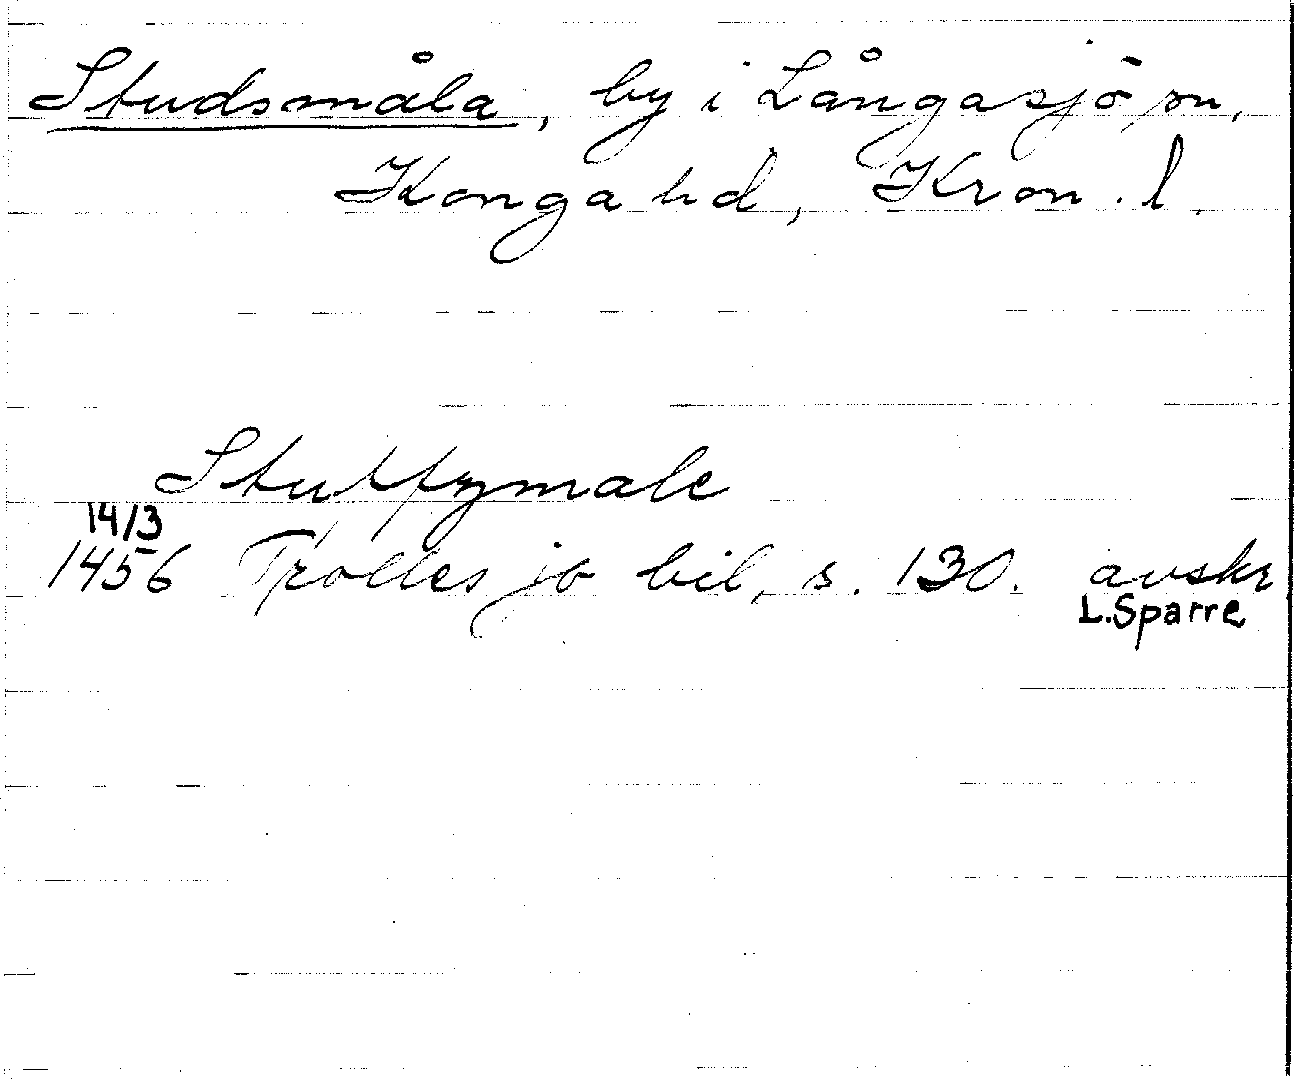 Studsmåla, by i Långasjö sn,
Konga hd, Kron. l.
Stutzmale
14/3
1456 Trolles jb bil, s. 130. avskr
L.Sparre